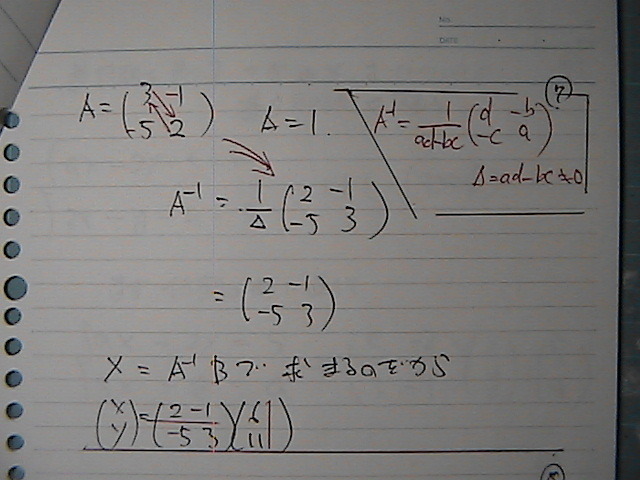 No.
DATE
⑦
A = ( 3 -1
-5 2 )
Δ = 1.
A⁻¹ = 1/ad-bc ( d -b
-c a )
Δ = ad - bc ≠ 0
A⁻¹ = 1/Δ ( 2 -1
-5 3 )
= ( 2 -1
-5 3 )
X = A⁻¹ B で 求まるのですから
( x
y ) = ( 2 -1
-5 3 ) ( 6
11 )